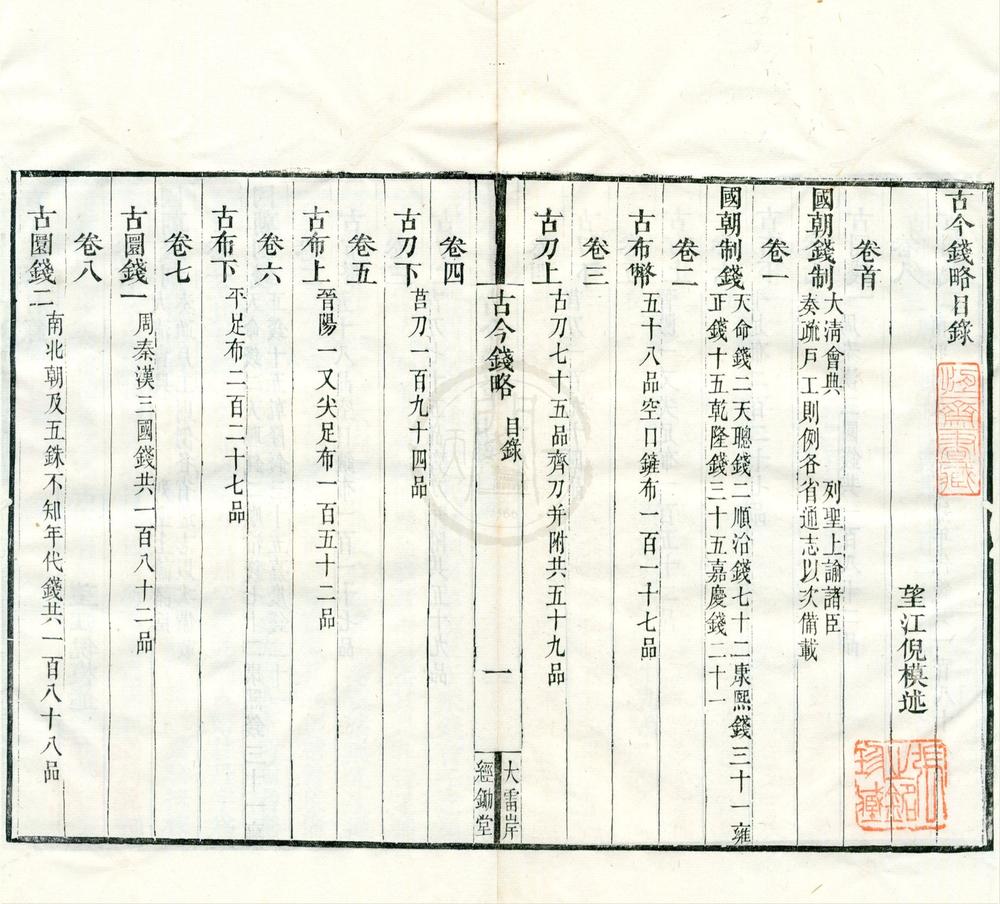 古今錢略目錄
望江倪模述
卷首
國朝錢制 大清會典 列聖上諭諸臣
奏疏戶工則例各省通志以次備載
卷一
國朝制錢 天命錢二天聰錢二順治錢七十二康熙錢三十一雍
正錢十五乾隆錢三十五嘉慶錢二十一
卷二
古布幣 五十八品空口鏟布一百一十七品
卷三
古刀上 古刀七十五品齊刀并附共五十九品
古今錢略 目錄
一
大雷岸
經鋤堂
卷四
古刀下 莒刀一百九十四品
卷五
古布上 晉陽一又尖足布一百五十二品
卷六
古布下 平足布二百二十七品
卷七
古圜錢一 周秦漢三國錢共一百八十二品
卷八
古圜錢二 南北朝及五銖不知年代錢共一百八十八品